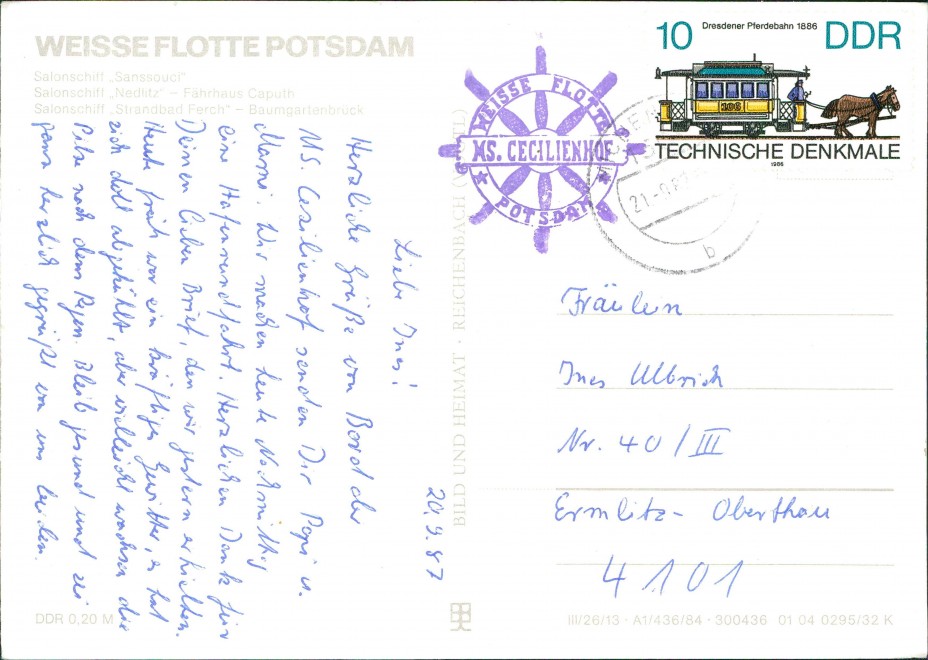 WEISSE FLOTTE POTSDAM
Salonschiff „Sanssouci“
Salonschiff „Nedlitz“ – Fährhaus Caputh
Salonschiff „Strandbad Ferch“ – Baumgartenbrück
20.9.87
Liebe Ines!
Herzliche Grüße von Bord der
MS. Cezilienhof senden Dir Papi u.
Mami. Wir machen heute Nachmittag
eine Hafenrundfahrt. Herzlichen Dank für
Deinen lieben Brief, den wir gestern erhielten.
Heute früh war ein kräftiger Gewitter, es hat
sich doll abgekühlt, aber vielleicht wachsen die
Pilze nach dem Regen. Bleib gesund und sei
ganz herzlich gegrüßt von uns beiden.
DDR 0,20 M
BILD UND HEIMAT · REICHENBACH
WEISSE FLOTTE
MS. CECILIENHOF
POTSDAM
21-9.87
b
10 Dresdener Pferdebahn 1886 DDR
106
TECHNISCHE DENKMALE
1986
Fräulein
Ines Ulbrich
Nr. 40/III
Ermlitz- Oberthau
4101
III/26/13 · A1/436/84 · 300436 01 04 0295/32 K